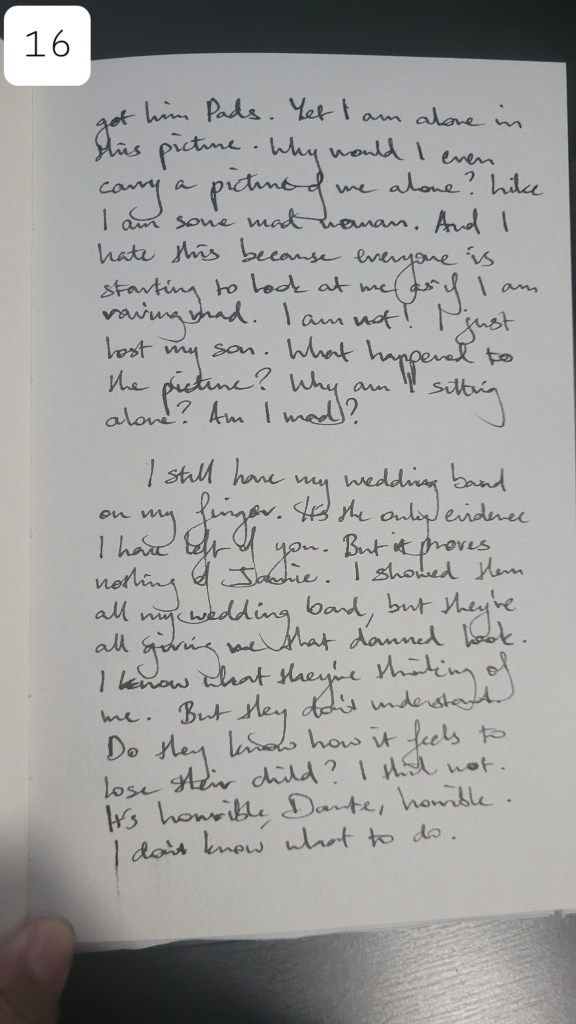 16
got him Pads. Yet I am alone in
this picture. Why would I even
carry a picture of me alone? Like
I am some mad woman. And I
hate this because everyone is
starting to look at me as if I am
raving mad. I am not! I just
lost my son. What happened to
the picture? Why am I sitting
alone? Am I mad?
I still have my wedding band
on my finger. It's the only evidence
I have left of you. But it proves
nothing of Jamie. I showed them
all my wedding band, but they're
all giving me that damned look.
I know what they're thinking of
me. But they don't understand.
Do they know how it feels to
lose their child? I think not.
It's horrible, Dante, horrible.
I don't know what to do.